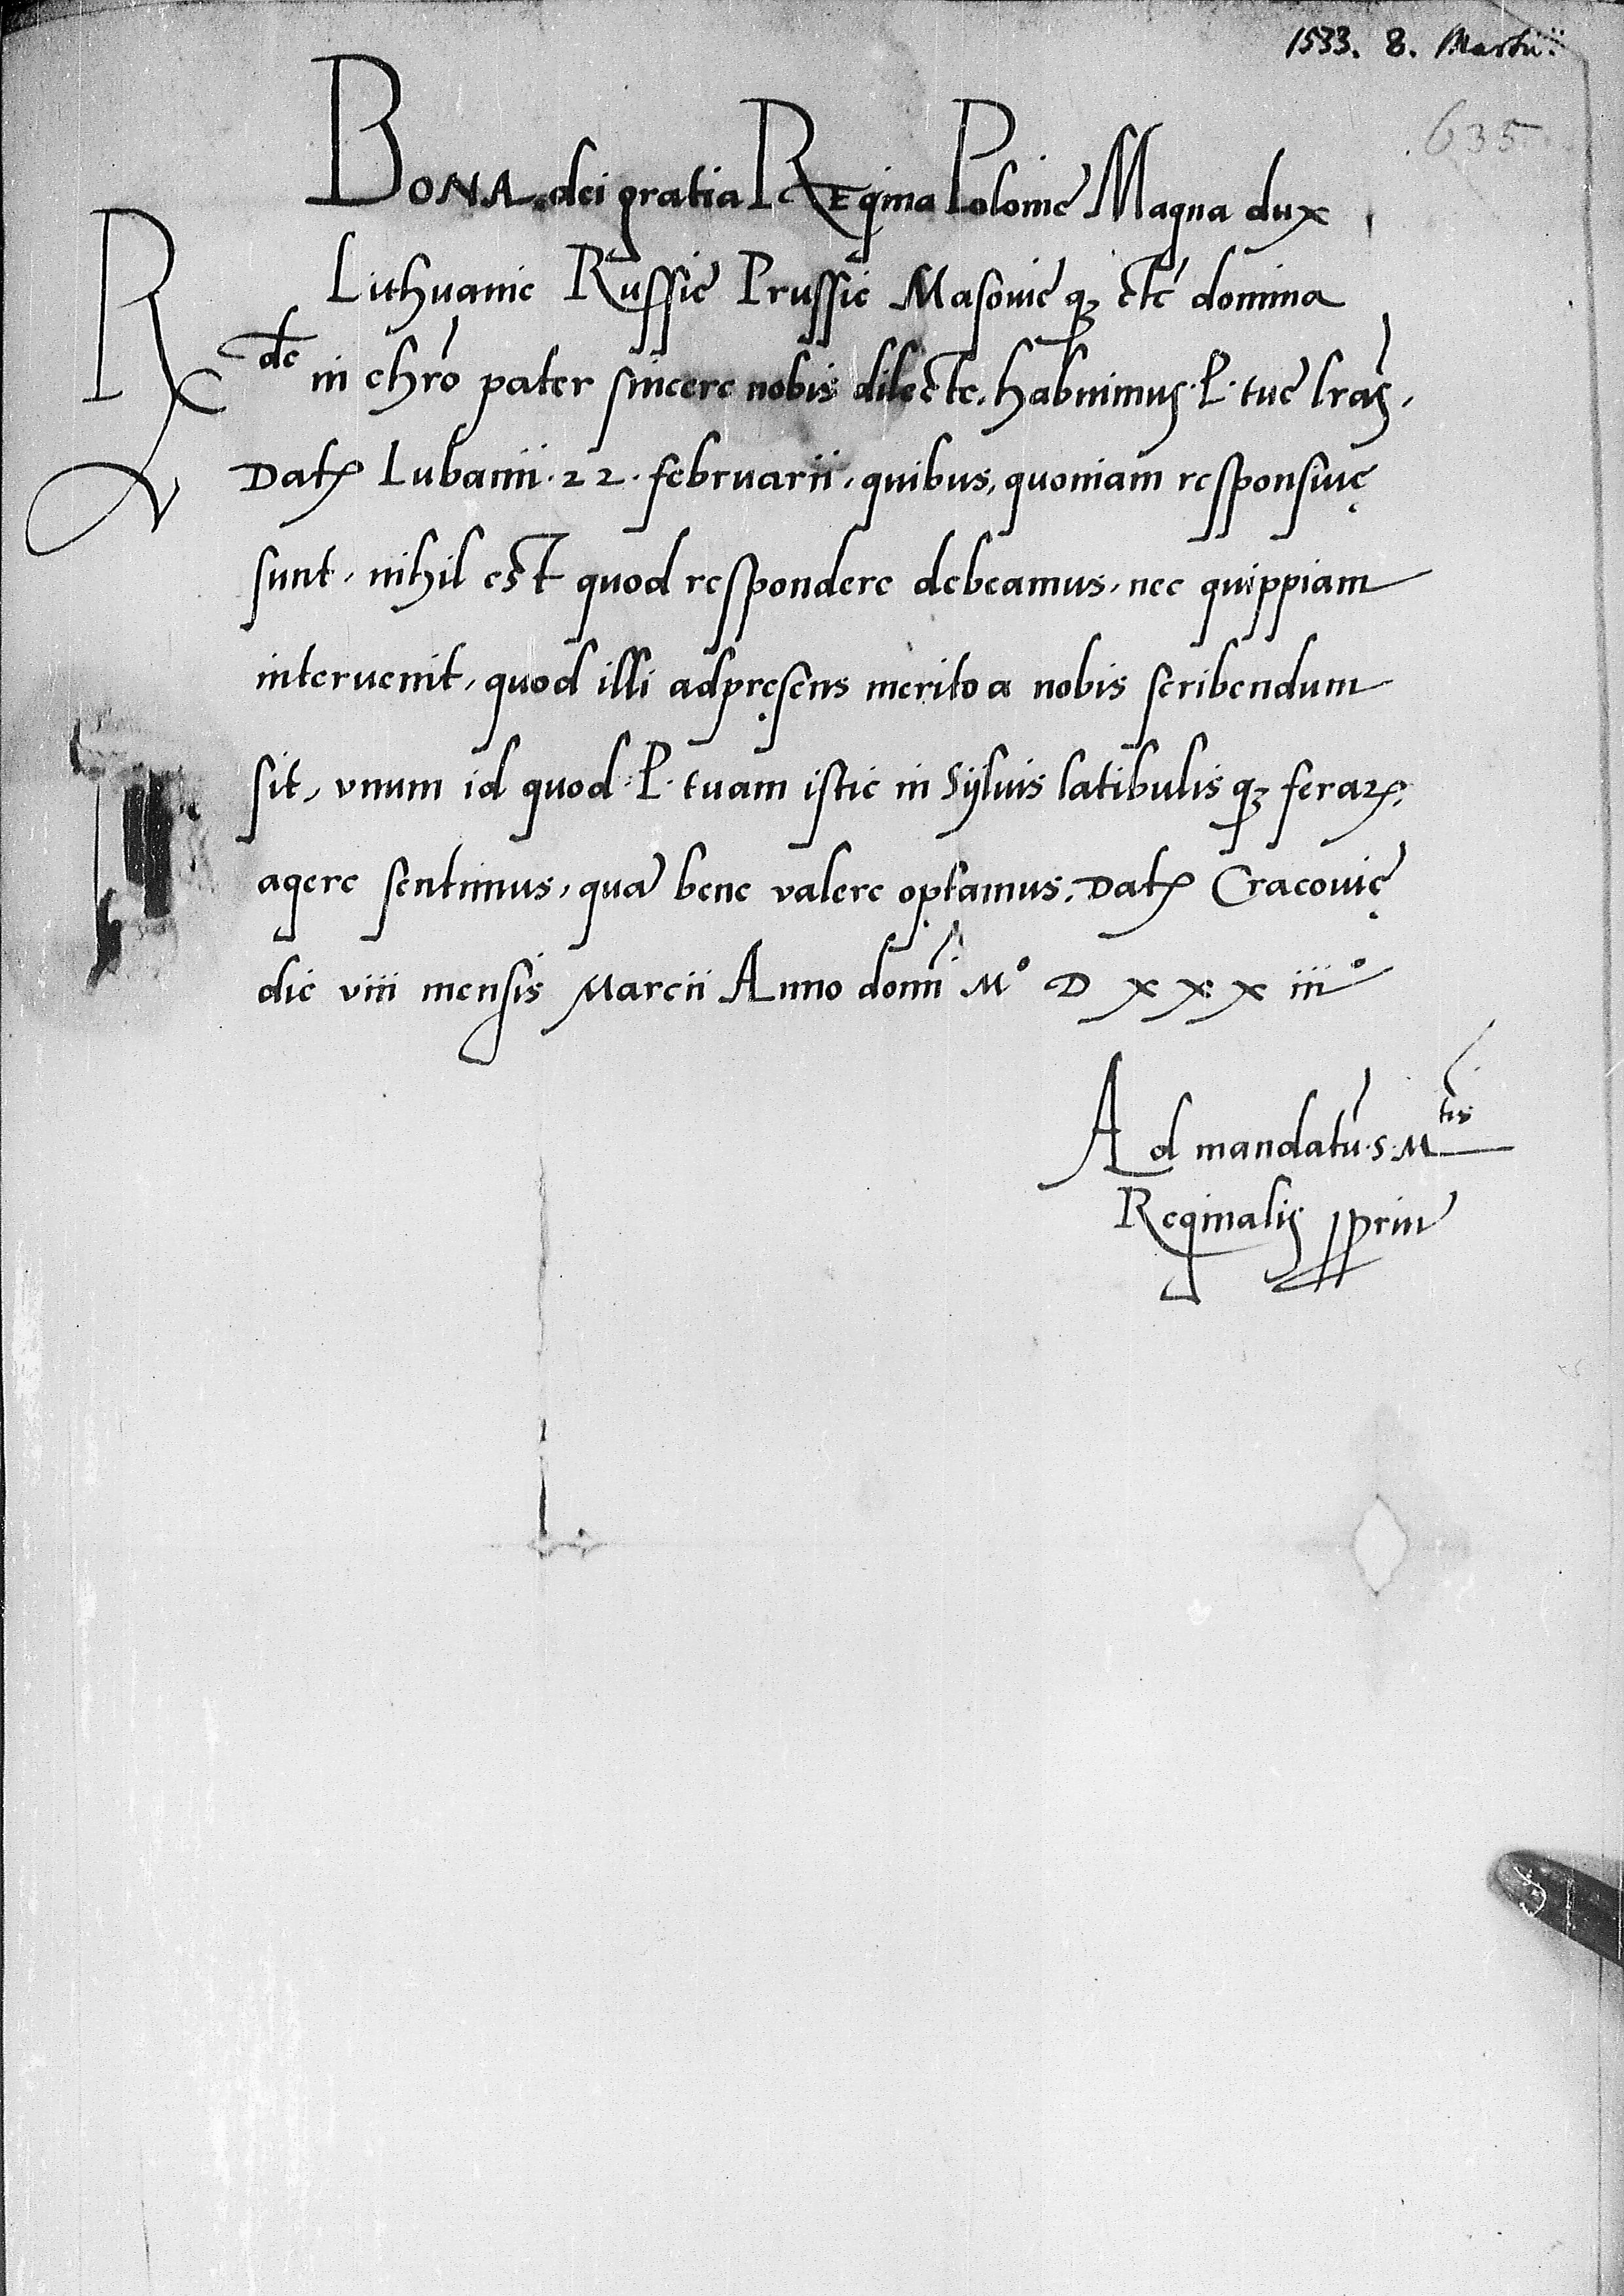 1533. 8. Martii
635
BONA dei gratia REgina Polonie Magna dux
Lithuanie Russie Prussie Masovie q₃ etc̃ domina
Rde in chro pater sincere nobis dilecte. habuimus P. tue lras,
Datꝫ Lubanii. 22. februarii, quibus, quoniam responsiuę
sunt, nihil est quod respondere debeamus, nec quippiam
interuenit, quod illi adpręsens merito a nobis scribendum
sit, vnum id quod P. tuam istic in Syluis latibulis q₃ feraꝝ
agere sentimus, quā bene valere optamus. Datꝫ Cracouię
die viii mensis Marcii Anno domi Mº D x x x iiiº
Ad mandatū. S. Mtis
Reginalis ppriū